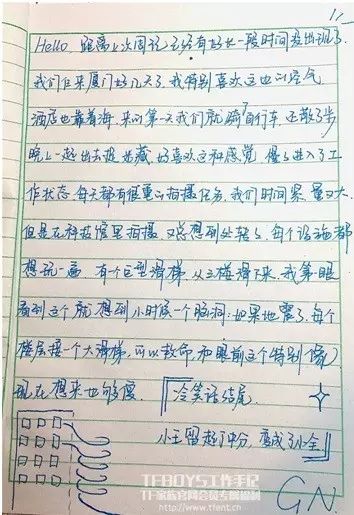 Hello. 距离上次周记已经有好长一段时间没出现了
我们已来厦门好几天了,我特别喜欢这边的空气
酒店也靠着海,来的第一天我们就骑自行车,还散了步
晚上一起出去捉迷藏,好喜欢这种感觉,慢慢进入了工
作状态,每天都有很重的拍摄任务,我们时间紧,量又大
但是在科技馆里拍摄,又总想到处转转,每个设施都
想玩一遍,有个巨型滑梯,从三楼滑下来,我第一眼
看到这个就想到小时候一个脑洞:如果地震了,每个
楼层接一个大滑梯,可以救命,和眼前这个特别像
现在想来也够傻
冷笑话结尾
小王留起了中分,变成了小全
GN
TFBOYS工作手记
TF家族官网会员专属福利
http://www.tfent.cn